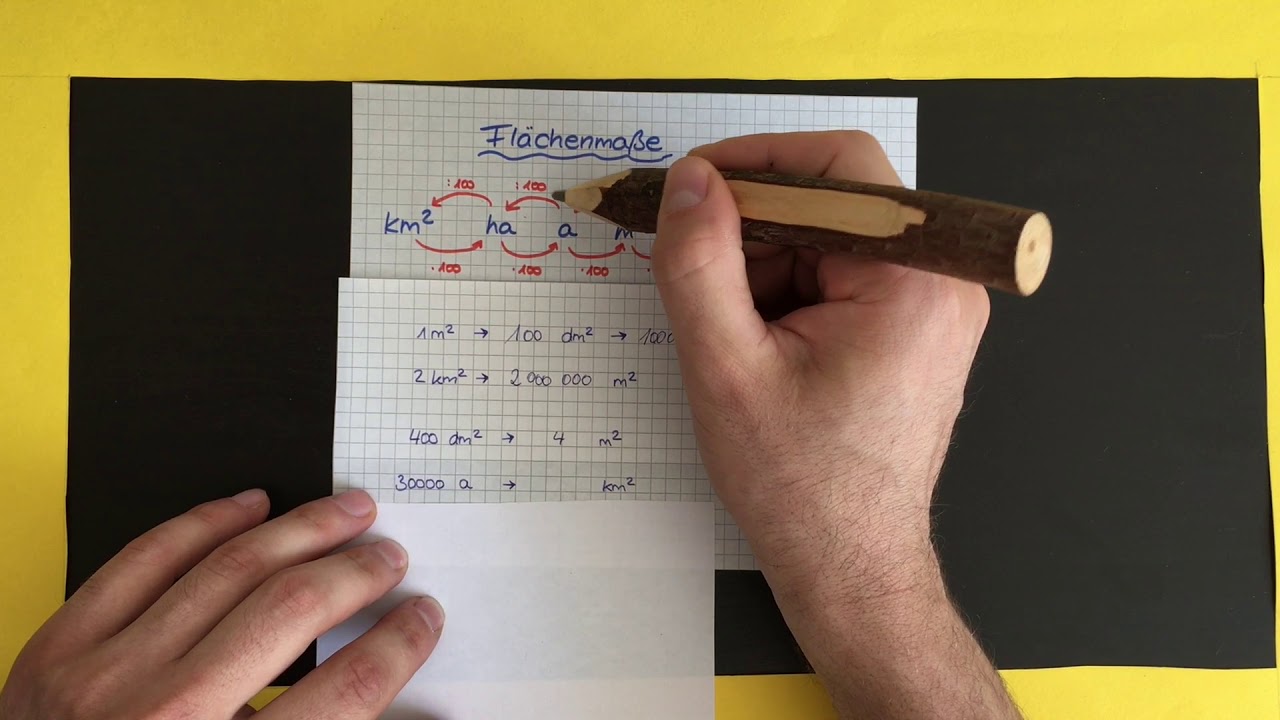 Flächenmaße
:100 :100
km² ha a m
·100 ·100 ·100
1m² → 100 dm² → 1000
2 km² → 2 000 000 m²
400 dm² → 4 m²
30000 a → km²